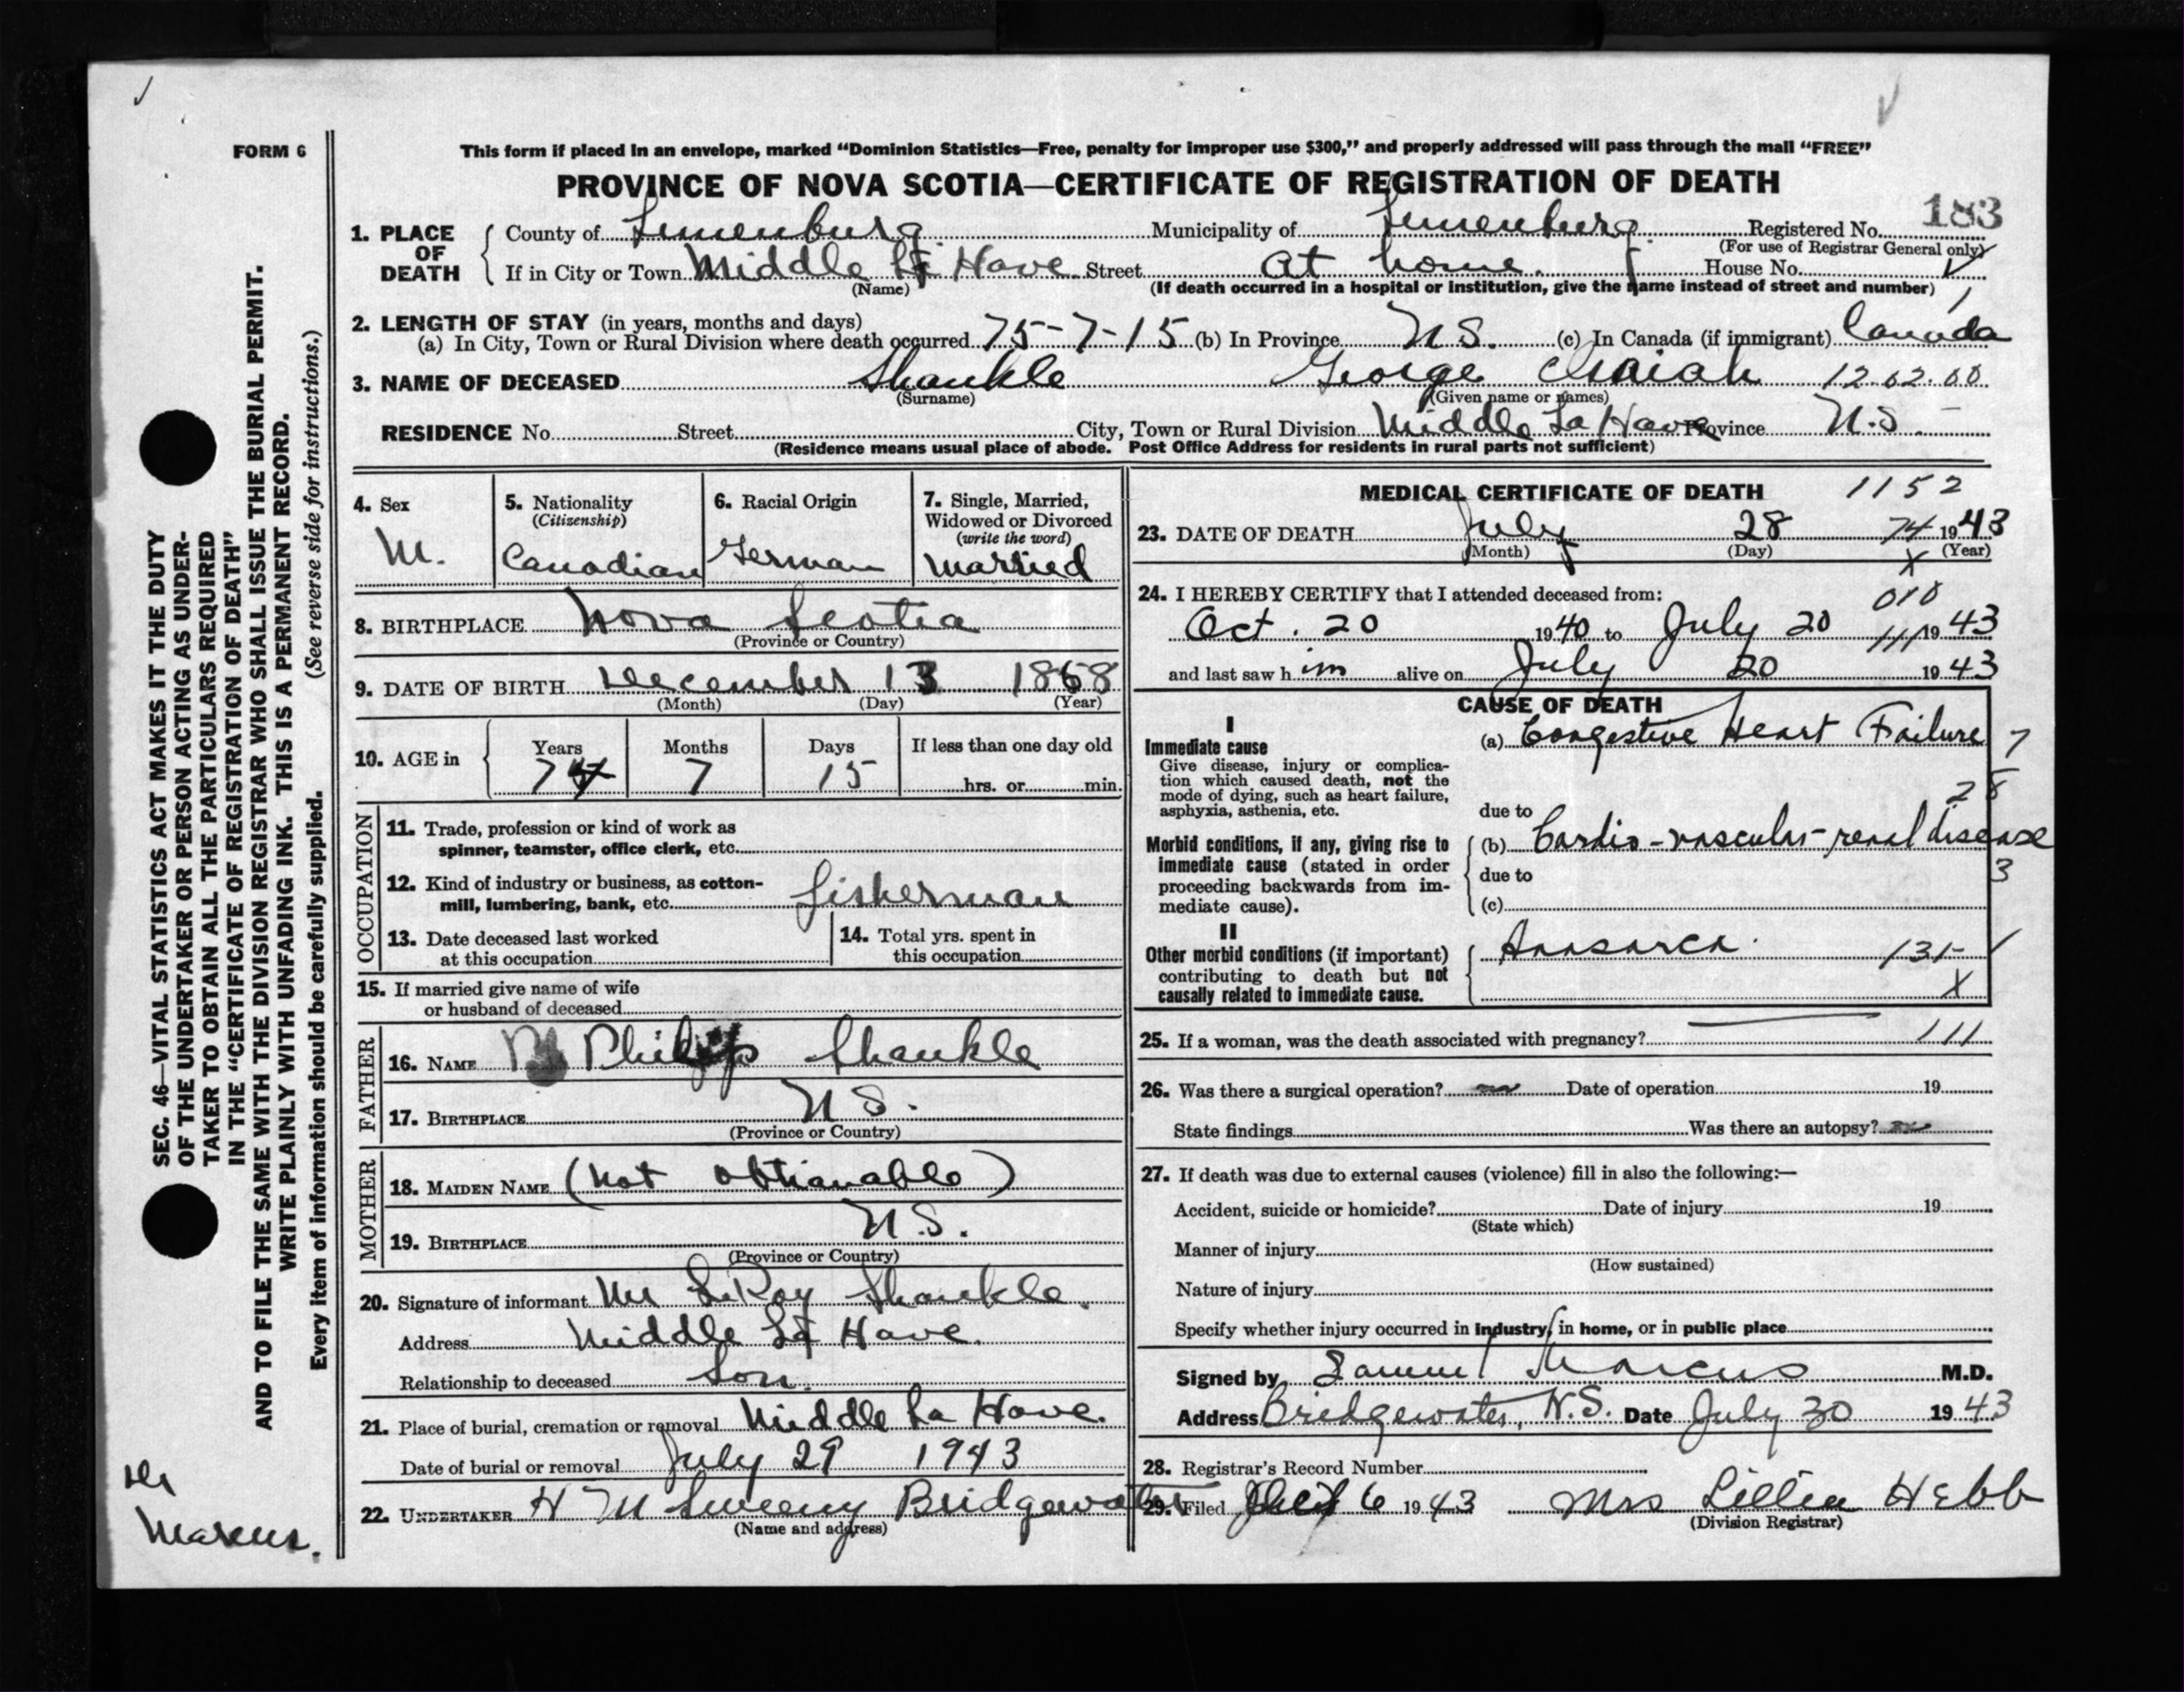 FORM 6
This form if placed in an envelope, marked “Dominion Statistics—Free, penalty for improper use $300,” and properly addressed will pass through the mail “FREE”
PROVINCE OF NOVA SCOTIA—CERTIFICATE OF REGISTRATION OF DEATH
183
1. PLACE OF DEATH
County of Lunenburg Municipality of Lunenburg Registered No.
(For use of Registrar General only)
If in City or Town Middle La Have Street At home. House No.
(Name) (If death occurred in a hospital or institution, give the name instead of street and number)
2. LENGTH OF STAY (in years, months and days)
(a) In City, Town or Rural Division where death occurred 75-7-15 (b) In Province N.S. (c) In Canada (if immigrant) Canada
3. NAME OF DECEASED Shankle George Isaiah 12.02.00
(Surname) (Given name or names)
RESIDENCE No. Street City, Town or Rural Division Middle La Have Province N.S.
(Residence means usual place of abode. Post Office Address for residents in rural parts not sufficient)
4. Sex
M.
5. Nationality
(Citizenship)
Canadian
6. Racial Origin
German
7. Single, Married,
Widowed or Divorced
(write the word)
Married
8. BIRTHPLACE Nova Scotia
(Province or Country)
9. DATE OF BIRTH December 13 1868
(Month) (Day) (Year)
10. AGE in
Years Months Days If less than one day old
74 7 15 hrs. or min.
OCCUPATION
11. Trade, profession or kind of work as
spinner, teamster, office clerk, etc.
12. Kind of industry or business, as cotton-
mill, lumbering, bank, etc. fisherman
13. Date deceased last worked
at this occupation
14. Total yrs. spent in
this occupation
15. If married give name of wife
or husband of deceased
FATHER
16. NAME Philip Shankle
17. BIRTHPLACE N.S.
(Province or Country)
MOTHER
18. MAIDEN NAME (not obtianable)
19. BIRTHPLACE N.S.
(Province or Country)
20. Signature of informant Mr LeRoy Shankle.
Address Middle La Have.
Relationship to deceased Son.
21. Place of burial, cremation or removal Middle La Have.
Date of burial or removal July 29 1943
22. UNDERTAKER H M Sweeny Bridgewater
(Name and address)
MEDICAL CERTIFICATE OF DEATH 1152
23. DATE OF DEATH July 28 74 1943
(Month) (Day) (Year)
X
24. I HEREBY CERTIFY that I attended deceased from:
010
Oct. 20 1940 to July 20 111 1943
and last saw h im alive on July 20 1943
CAUSE OF DEATH
I
Immediate cause
Give disease, injury or complica-
tion which caused death, not the
mode of dying, such as heart failure,
asphyxia, asthenia, etc.
(a) Congestive Heart Failure 7
28
due to
Morbid conditions, if any, giving rise to
immediate cause (stated in order
proceeding backwards from im-
mediate cause).
(b) Cardio-vascular-renal disease
due to 3
(c)
II
Other morbid conditions (if important)
contributing to death but not
causally related to immediate cause.
Anasarca. 131-
X
25. If a woman, was the death associated with pregnancy? 111
26. Was there a surgical operation? no Date of operation 19
State findings Was there an autopsy? no
27. If death was due to external causes (violence) fill in also the following:—
Accident, suicide or homicide? Date of injury 19
(State which)
Manner of injury
(How sustained)
Nature of injury
Specify whether injury occurred in industry, in home, or in public place
Signed by Samuel Marcus M.D.
Address Bridgewater, N.S. Date July 30 1943
28. Registrar's Record Number
29. Filed 6 1943 Mrs Lillia Hebb
(Division Registrar)
SEC. 46—VITAL STATISTICS ACT MAKES IT THE DUTY
OF THE UNDERTAKER OR PERSON ACTING AS UNDER-
TAKER TO OBTAIN ALL THE PARTICULARS REQUIRED
IN THE “CERTIFICATE OF REGISTRATION OF DEATH”
AND TO FILE THE SAME WITH THE DIVISION REGISTRAR WHO SHALL ISSUE THE BURIAL PERMIT.
WRITE PLAINLY WITH UNFADING INK. THIS IS A PERMANENT RECORD.
Every item of information should be carefully supplied. (See reverse side for instructions.)
Dr
Marcus.